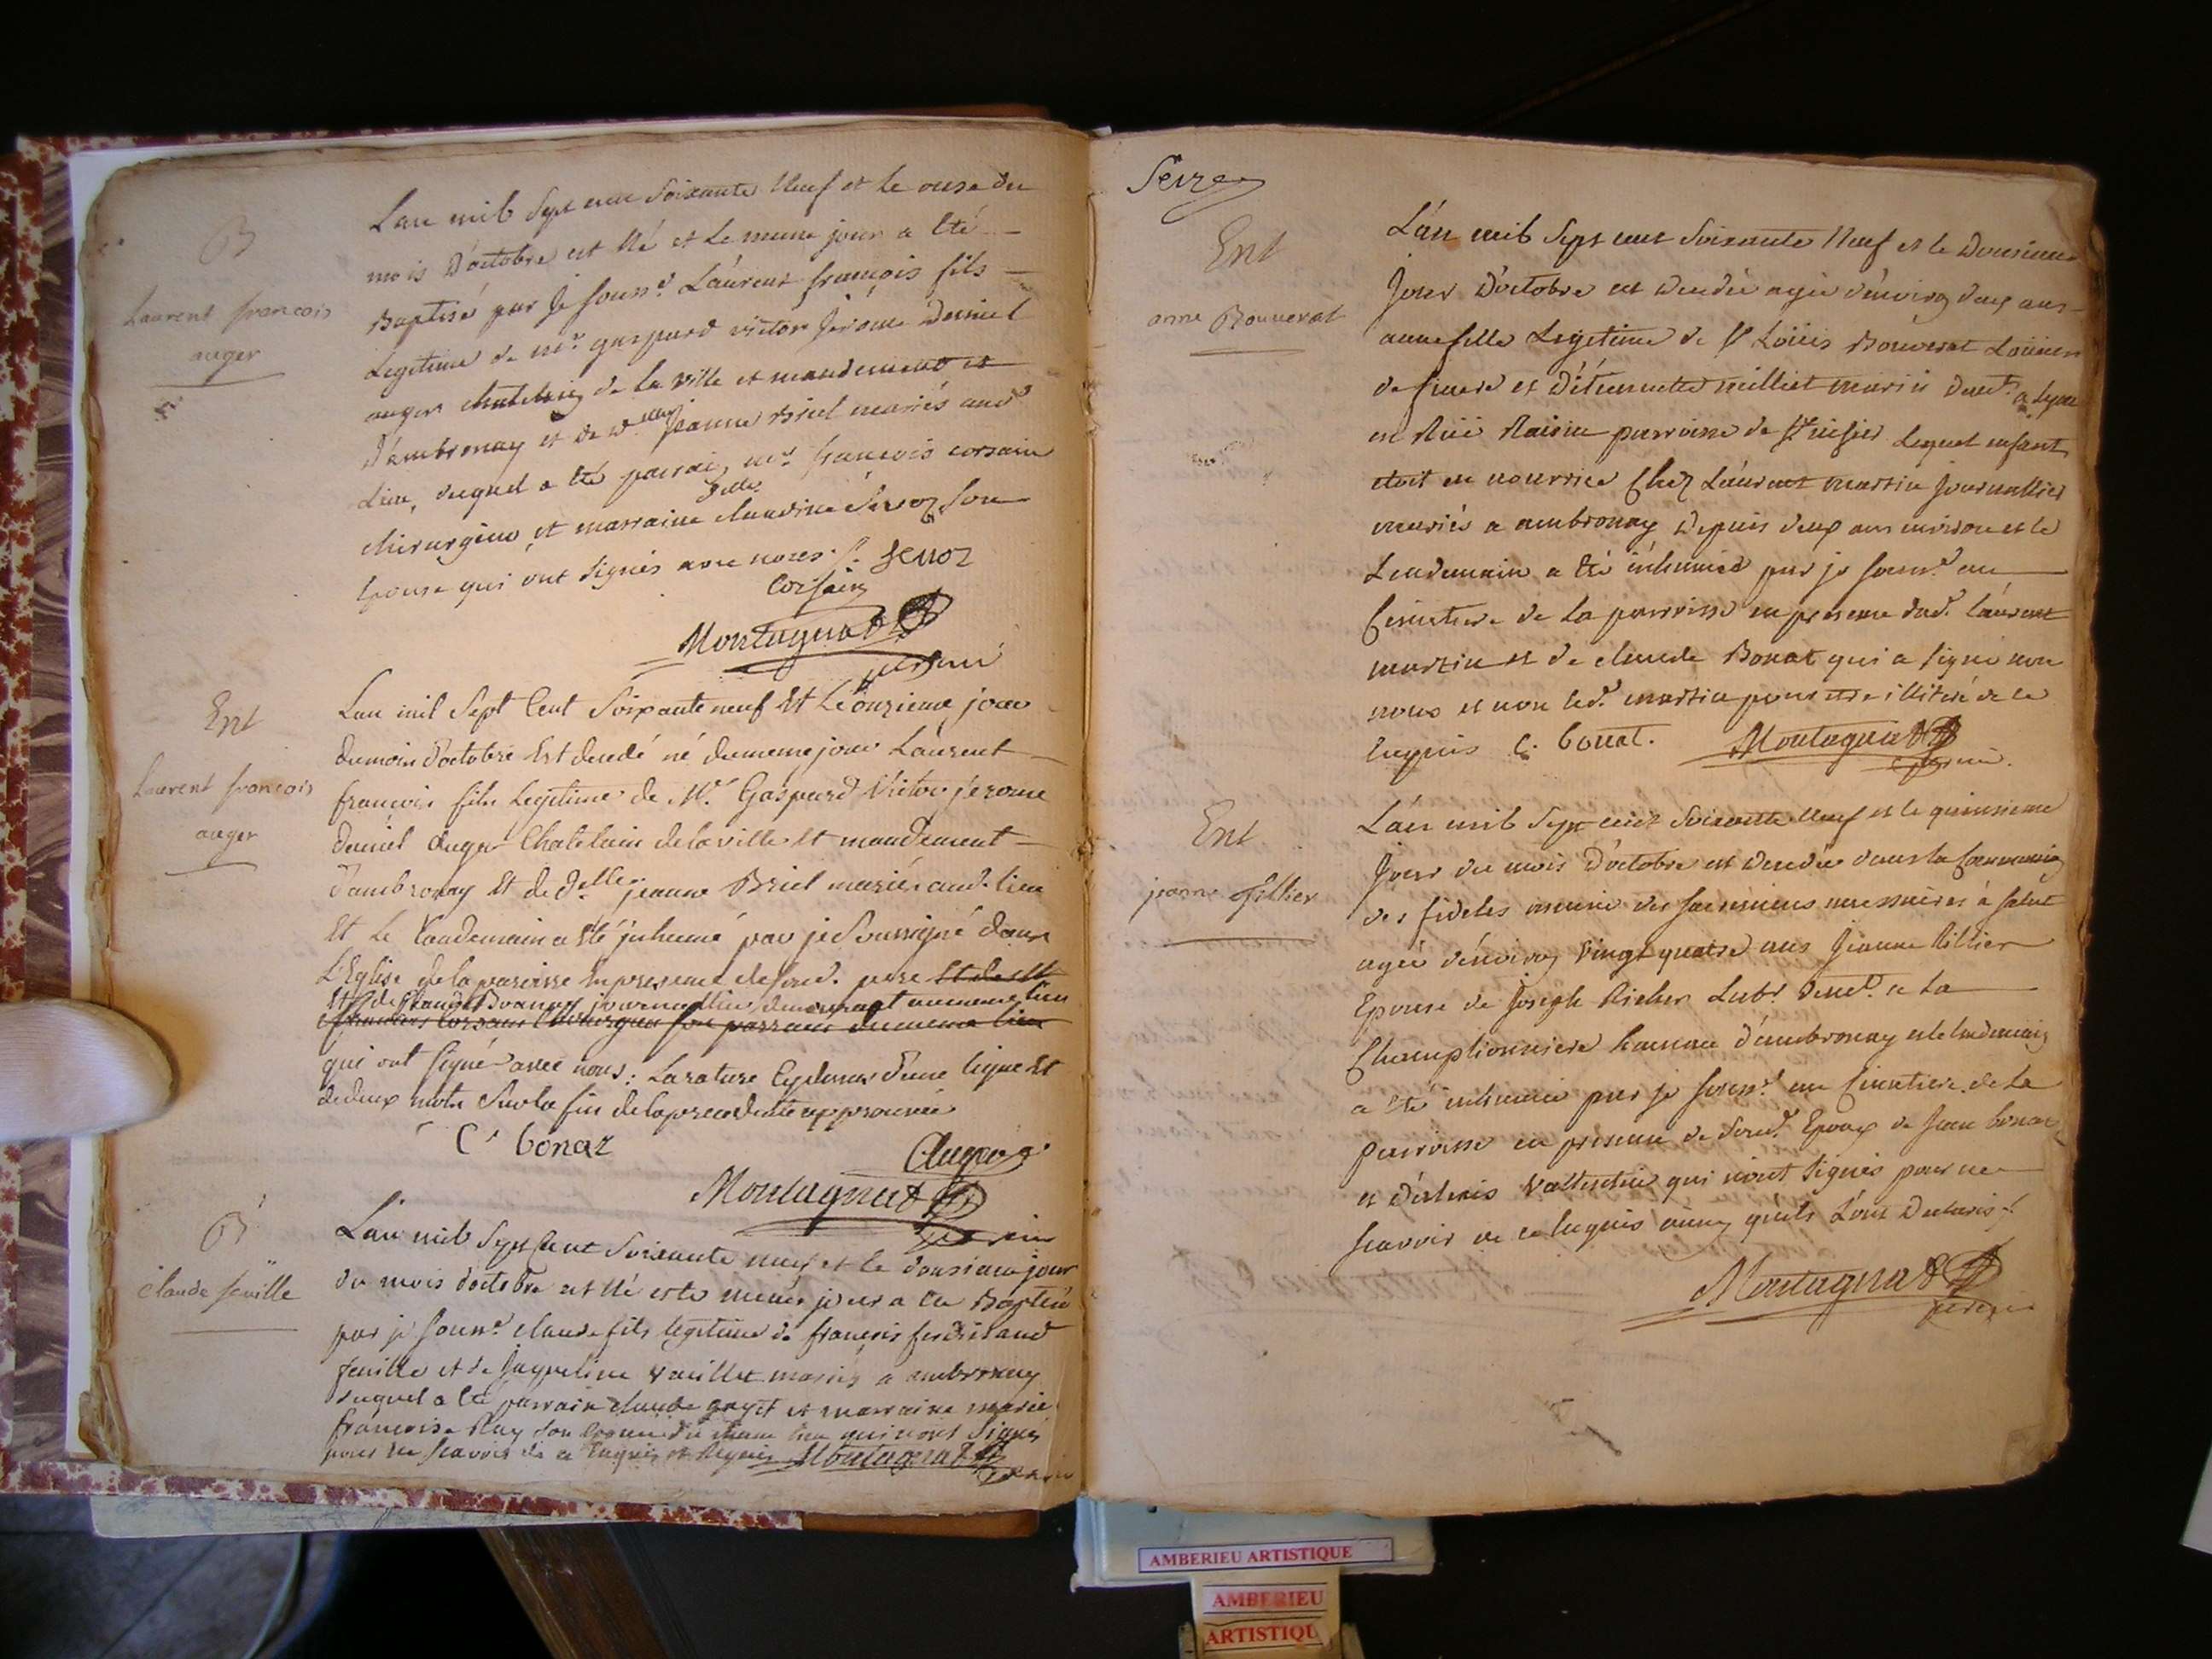 B
Laurent francois
auger
Lan mil Sept cent Soixante Neuf et le onze du
mois D'octobre est Né et le meme jour a Eté
Baptisé par Je souss.é Laurent françois fils
Legitime de mr. gaspard victor Jerome Daniel
auger chatelain de la ville et mandement
d'ambronay et de dlle Jeanne Briel mariés aud.
Lieu, duquel a été parrain, mr. francois corsain
chirurgien, et marraine dlle claudine Servoz son
Epouse qui ont signés avec nous. f. Servoz
Corsain
Montagnat
Ent
Laurent francois
auger
Lan mil Sept Cent Soixante neuf Et Le onzieme jour
du mois d'octobre Est decedé né du meme jour Laurent
francois fils Legitime de Mr. Gaspard Victor jerome
Daniel Auger Chatelain de la ville Et mandement
d'ambronay Et de Delle. jeanne Briel mariés aud. lieu
Et Le Landemain a Eté jnhumé par je Soussigné dans
L'Eglise de la paroisse En presence de sond. pere Et de
Et de Claude Bonnaz journallier demeurant au meme lieu
francois Corsain Chirurgien son parrain du meme lieu
qui ont signé avec nous: La rature Cydessus d'une ligne Et
de deux mots Sur la fin de la precedente approuvée
C. bonaz
Auger
Montagnat
B
claude feuille
L'an mil Sept Cent Soixante neuf et le douzieme jour
du mois d'octobre est Né et le meme jour a été Baptisé
par je souss.é claude fils legitime de françois ferdinand
feuille et de Jaqueline vuillet mariés a ambronay
duquel a été parrain claude goyet et marraine marie
françoise Ruy son Epouse du meme lieu qui n'ont Signés
pour ne scavoir de ce Enquis et Requis Montagnat
Seize
Ent
anne Bouverat
L'an mil Sept cent Soixante Neuf et le Douzieme
Jour D'octobre est decedée agée d'environ deux ans
anne fille Legitime de Sr Loüis Bouverat
et D'etiennette milliet mariés demt. a Lyon
en Rüe Raisin parroisse de St nisier Lequel enfant
etoit en nourrice Chez Laurent martin Journallier
mariés a ambronay Depuis deux ans environ et le
Lendemain a Eté inhumée par je souss.é au
Cimetiere de la parroisse en presence dud. laurent
martin et de claude Bonat qui a signé avec
nous et non led. martin pour etre illiteré de ce
Enquis C. bonat. Montagnat
Ent
jeanne Tillier
L'an mil Sept cent Soixante Neuf et le quinzieme
Jour du mois D'octobre est decedée dans la Communion
des fideles munie des sacremens necessaires à salut
agée d'environ vingt quatre ans Jeanne tillier
Epouse de Joseph Richer Labr. demt. a la
Championniere hameau d'ambronay et le lendemain
a Eté inhumée par je souss.é au Cimetiere de La
parroisse en presence de sond. Epoux de Jean bonaz
et d'estenis vallentin qui n'ont signés pour ne
scavoir de ce Enquis ainsy qu'ils L'ont Declarés
Montagnat
AMBERIEU ARTISTIQUE
AMBERIEU
ARTISTIQU